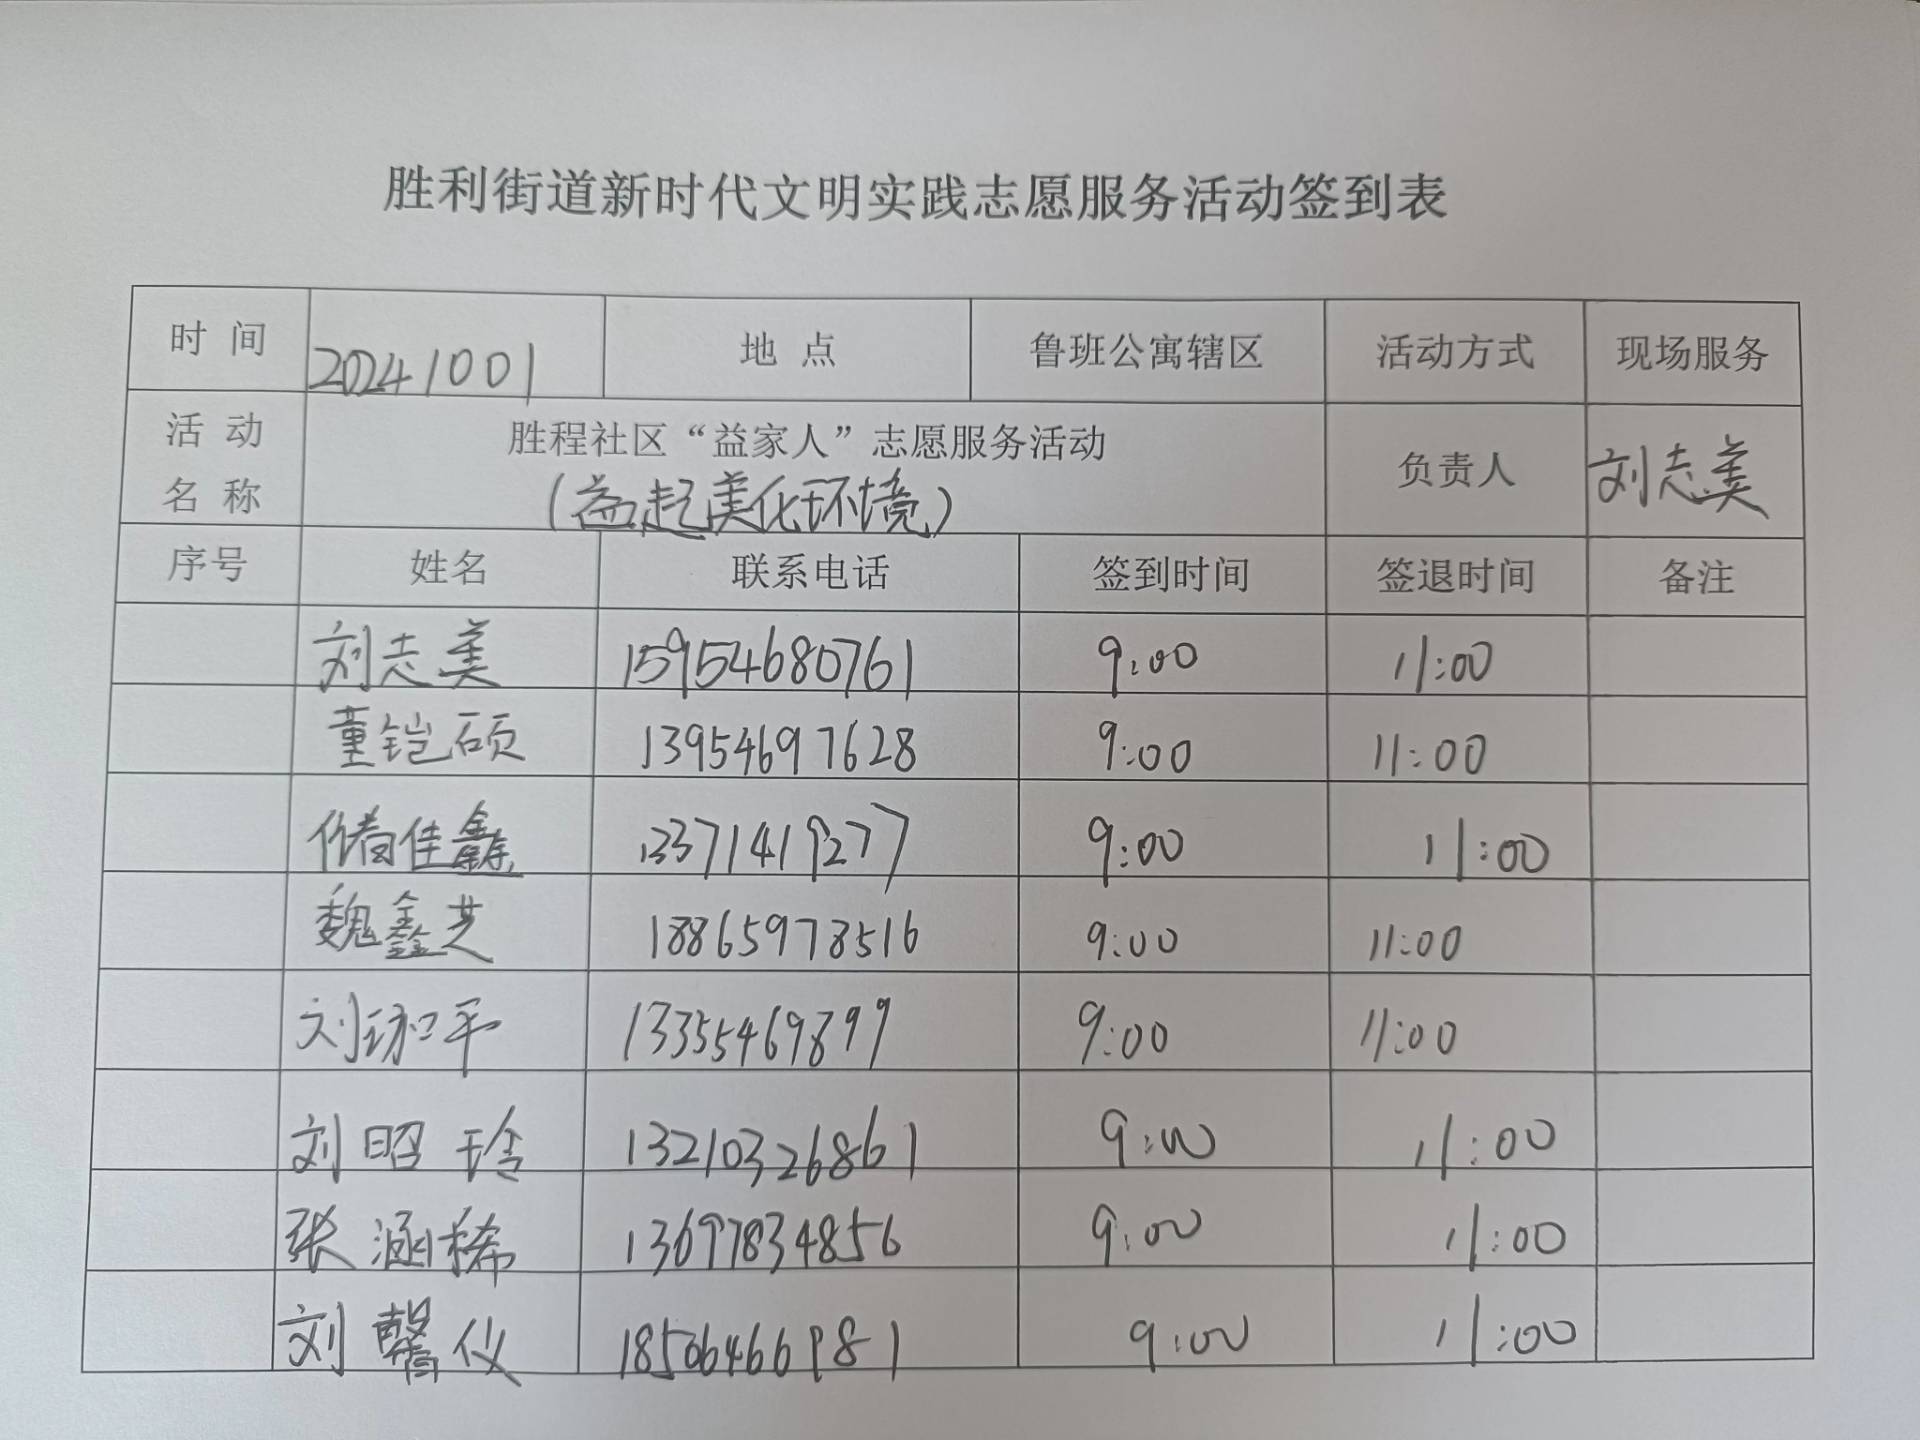 胜利街道新时代文明实践志愿服务活动签到表
时 间 20241001 地 点 鲁班公寓辖区 活动方式 现场服务
活 动 名 称 胜程社区“益家人”志愿服务活动 负责人 刘志美
(益起美化环境)
序号 姓名 联系电话 签到时间 签退时间 备注
刘志美 15954680761 9:00 11:00
董铠硕 13954697628 9:00 11:00
储佳鑫 13371419277 9:00 11:00
魏鑫芝 18865978516 9:00 11:00
刘珈平 13355469899 9:00 11:00
刘昭玲 13210326861 9:00 11:00
张涵稀 13697834856 9:00 11:00
刘馨仪 18506466981 9:00 11:00